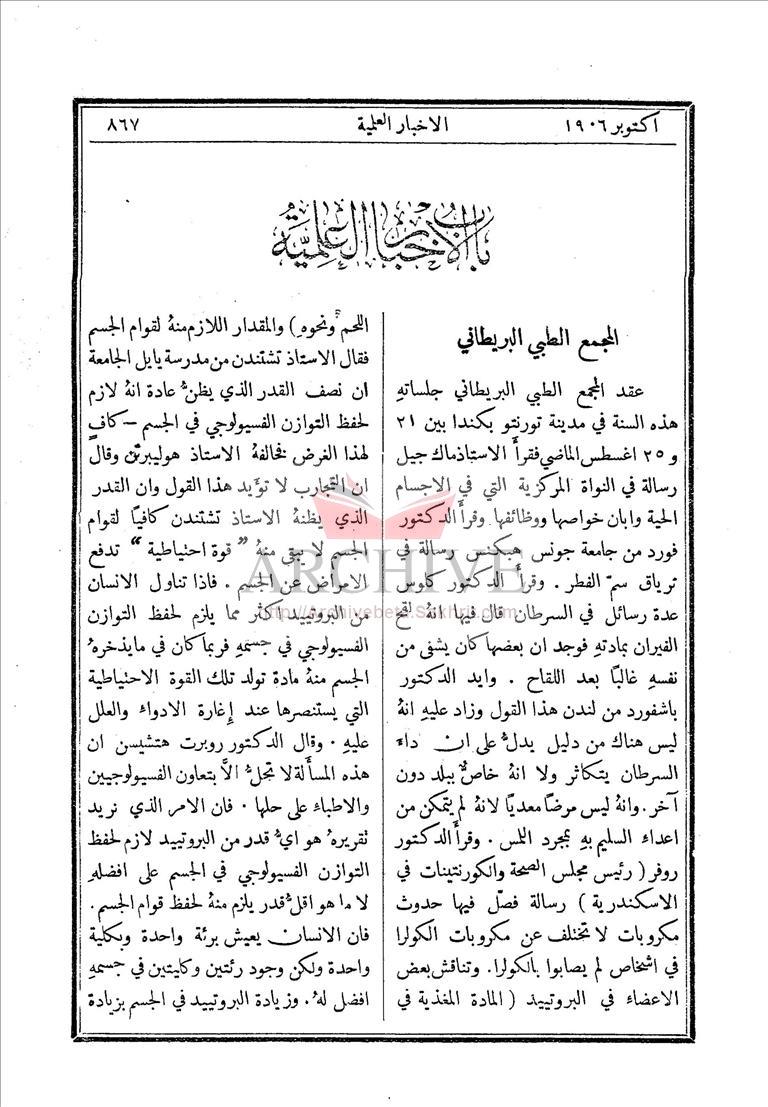 اكتوبر ١٩٠٦ الاخبار العلمية ٨٦٧
باب الاخبار العلمية
المجمع الطبي البريطاني
عقد المجمع الطبي البريطاني جلساتهِ
هذه السنة في مدينة تورنتو بكندا بين ٢١
و ٢٥ اغسطس الماضي فقرأَ الاستاذ ماك جيل
رسالة في النواة المركزية التي في الاجسام
الحية وابان خواصها ووظائفها وقرأَ الدكتور
فورد من جامعة جونس هبكنس رسالة في
ترياق سمّ الفطر. وقرأَ الدكتور كلوس
عدة رسائل في السرطان قال فيها انهُ لقح
الفيران بمادتهِ فوجد ان بعضها كان يشفى من
نفسهِ غالبًا بعد اللقاح. وايد الدكتور
باشفورد من لندن هذا القول وزاد عليهِ انهُ
ليس هناك من دليل يدلُّ على ان داءَ
السرطان يتكاثر ولا انهُ خاصٌّ ببلد دون
آخر. وانهُ ليس مرضًا معديًا لانهُ لم يتمكن من
اعداء السليم بهِ بمجرد اللمس. وقرأَ الدكتور
روفر (رئيس مجلس الصحة والكورنتينات في
الاسكندرية) رسالة فصّل فيها حدوث
مكروبات لا تختلف عن مكروبات الكولرا
في اشخاص لم يصابوا بالكولرا. وتناقش بعض
الاعضاء في البروتييد (المادة المغذية في
اللحم ونحوهِ) والمقدار اللازم منهُ لقوام الجسم
فقال الاستاذ تشتندن من مدرسة يايل الجامعة
ان نصف القدر الذي يظنُّ عادة انهُ لازم
لحفظ التوازن الفسيولوجي في الجسم – كافٍ
لهذا الغرض فخالفهُ الاستاذ هوليبرتن وقال
ان التجارب لا تؤيد هذا القول وان القدر
الذي يظنهُ الاستاذ تشتندن كافيًا لقوام
الجسم لا يبقى منهُ "قوة احتياطية" تدفع
الامراض عن الجسم. فاذا تناول الانسان
من البروتييد اكثر مما يلزم لحفظ التوازن
الفسيولوجي في جسمهِ فربما كان في ما يذخرهُ
الجسم منهُ مادة تولد تلك القوة الاحتياطية
التي يستنصرها عند إِغارة الادواء والعلل
عليهِ. وقال الدكتور روبرت هتشيسن ان
هذه المسأَلة لا تحلُّ الَّا بتعاون الفسيولوجيين
والاطباء على حلها. فان الامر الذي نريد
تقريرهُ هو ايُّ قدر من البروتييد لازم لحفظ
التوازن الفسيولوجي في الجسم على افضلهِ
لا ما هو اقلُّ قدر يلزم منهُ لحفظ قوام الجسم.
فان الانسان يعيش برئة واحدة وبكلية
واحدة ولكن وجود رئتين وكليتين في جسمهِ
افضل لهُ. وزيادة البروتييد في الجسم بزيادة
ARCHIVE
http://Archivebeta.Sakhrit.com